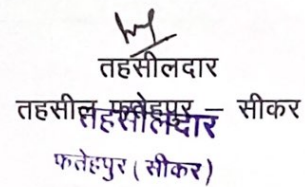 तहसीलदार
तहसील फतेहपुर – सीकर
तहसीलदार
फतेहपुर ( सीकर )